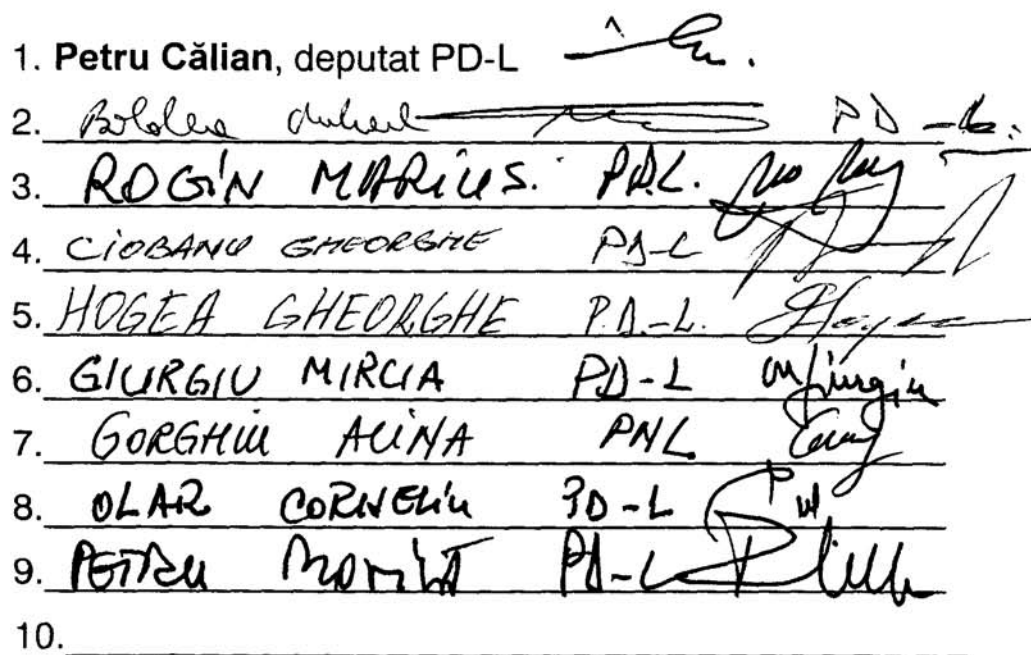 1. Petru Călian, deputat PD-L
2. Boldea Mihail PD-L.
3. ROGiN MARiUS. PDL.
4. CiOBANU GHEORGHE PD-L
5. HOGEA GHEORGHE P.D.-L.
6. GIURGIU MIRCIA PD-L
7. GORGHIU ALiNA PNL
8. OLAR CORNELiU PD-L
9. PETRU PD-L
10.